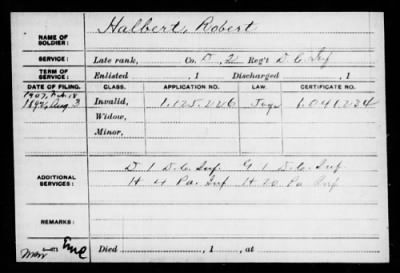 NAME OF SOLDIER: Halbert, Robert
SERVICE: Late rank, Co. D, 2 Reg't D. C. Inf
TERM OF SERVICE: Enlisted , 1 Discharged , 1
DATE OF FILING. CLASS. APPLICATION NO. LAW. CERTIFICATE NO.
1907, Feb. 18
1892, Aug. 3 Invalid, 1.125.226 1.041.234
Widow,
Minor,
ADDITIONAL SERVICES: D 1 D.C. Inf. G 1 D.C. Inf
H 4 Pa. Inf H. 20 Pa Inf.
REMARKS:
Died , 1 , at